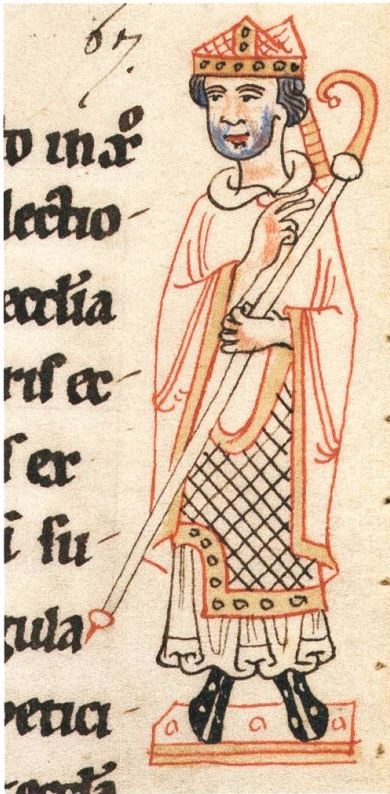 67
to in xp̄o
lectio-
ecctīa
ris ec-
s ex
i su-
gula
petici-